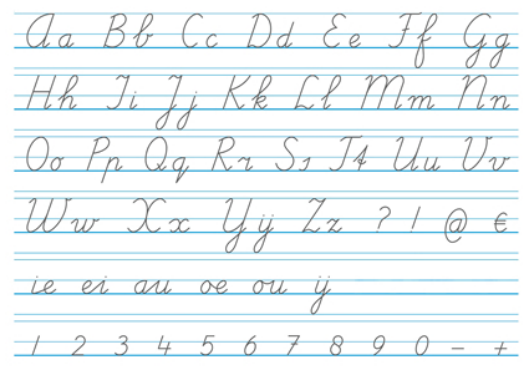 Aa Bb Cc Dd Ee Ff Gg
Hh Ii Jj Kk Ll Mm Nn
Oo Pp Qq Rr Ss Tt Uu Vv
Ww Xx Yÿ Zz ? ! @ €
ie ei au oe ou ij
1 2 3 4 5 6 7 8 9 0 - +